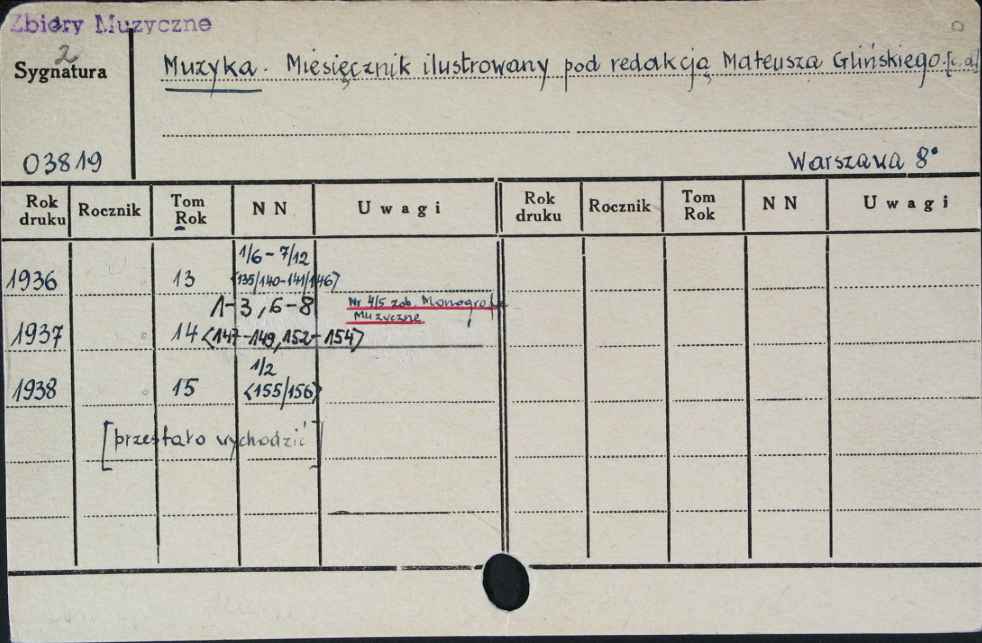 Zbiory Muzyczne
2
Sygnatura
Muzyka. Miesięcznik ilustrowany pod redakcją Mateusza Glińskiego. [c.d]
03819
Warszawa 8°
Rok druku Rocznik Tom Rok NN Uwagi Rok druku Rocznik Tom Rok NN Uwagi
1/6-7/12
1936 13 <135/140-141/146>
1-3, 6-8 Nr 4/5 zob. Monografie
Muzyczne
1937 14 <147-149, 152-154>
1/2
1938 15 <155/156>
[przestało wychodzić]